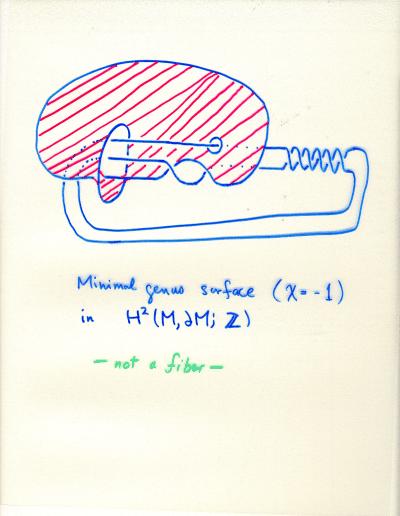 Minimal genus surface (χ = -1)
in H²(M, ∂M; ℤ)
— not a fiber —